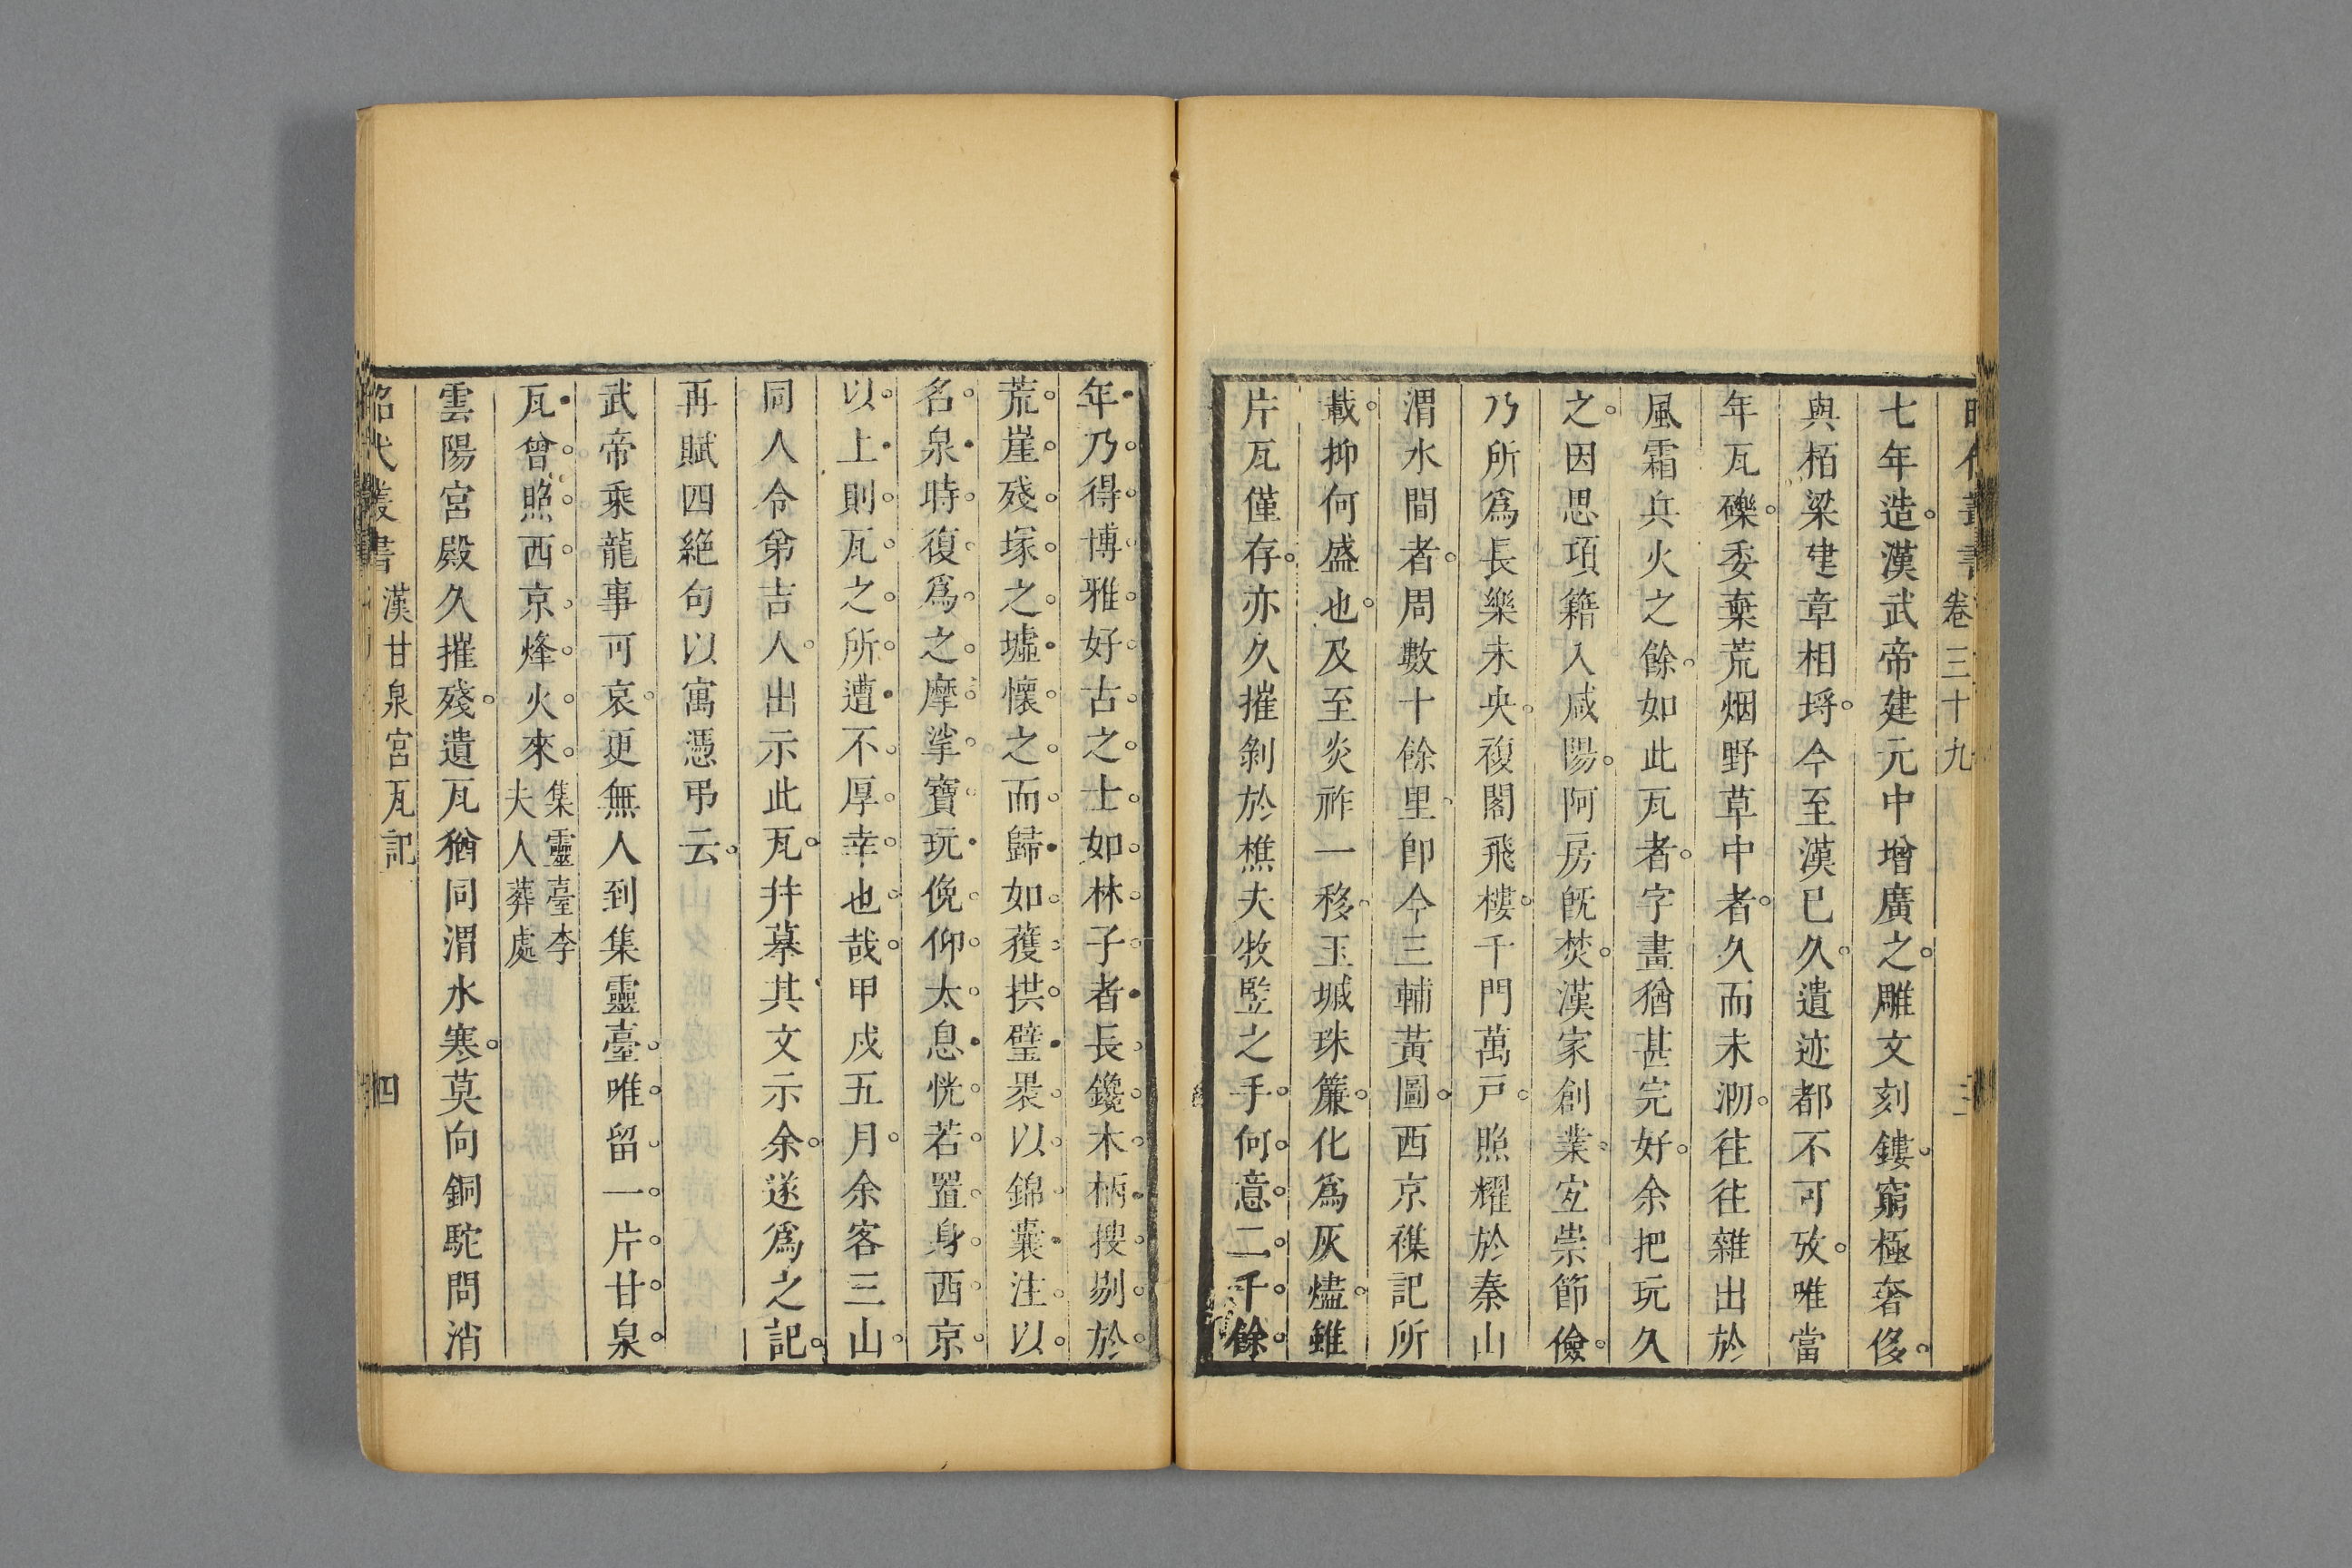 卷三十九
七年造漢武帝建元中增廣之雕文刻鏤窮極奢侈
與栢梁建章相埒今至漢已久遺迹都不可攷唯當
年瓦礫委棄荒烟野草中者久而未泐往往雜出於
風霜兵火之餘如此瓦者字畫猶甚完好余把玩久
之因思項籍入咸陽阿房旣焚漢家創業宐崇節儉
乃所爲長樂未央複閣飛樓千門萬戸照耀於秦山
渭水間者周數十餘里卽今三輔黃圖西京襍記所
載抑何盛也及至炎祚一移玉堿珠簾化爲灰燼雖
片瓦僅存亦久摧剝於樵夫牧豎之手何意二千餘
年乃得博雅好古之士如林子者長鑱木柄搜剔於
荒崖殘塚之墟懷之而歸如獲拱璧褁以錦囊注以
名泉時復爲之摩挲寶玩俛仰太息恍若置身西京
以上則瓦之所遭不厚幸也哉甲戌五月余客三山
同人令弟吉人出示此瓦幷摹其文示余遂爲之記
再賦四絶句以寓憑弔云
武帝乘龍事可哀更無人到集靈臺唯留一片甘泉
瓦曾照西京烽火來集靈臺李夫人葬處
雲陽宮殿久摧殘遺瓦猶同渭水寒莫向銅駝問消
昭代叢書 漢甘泉宮瓦記 四